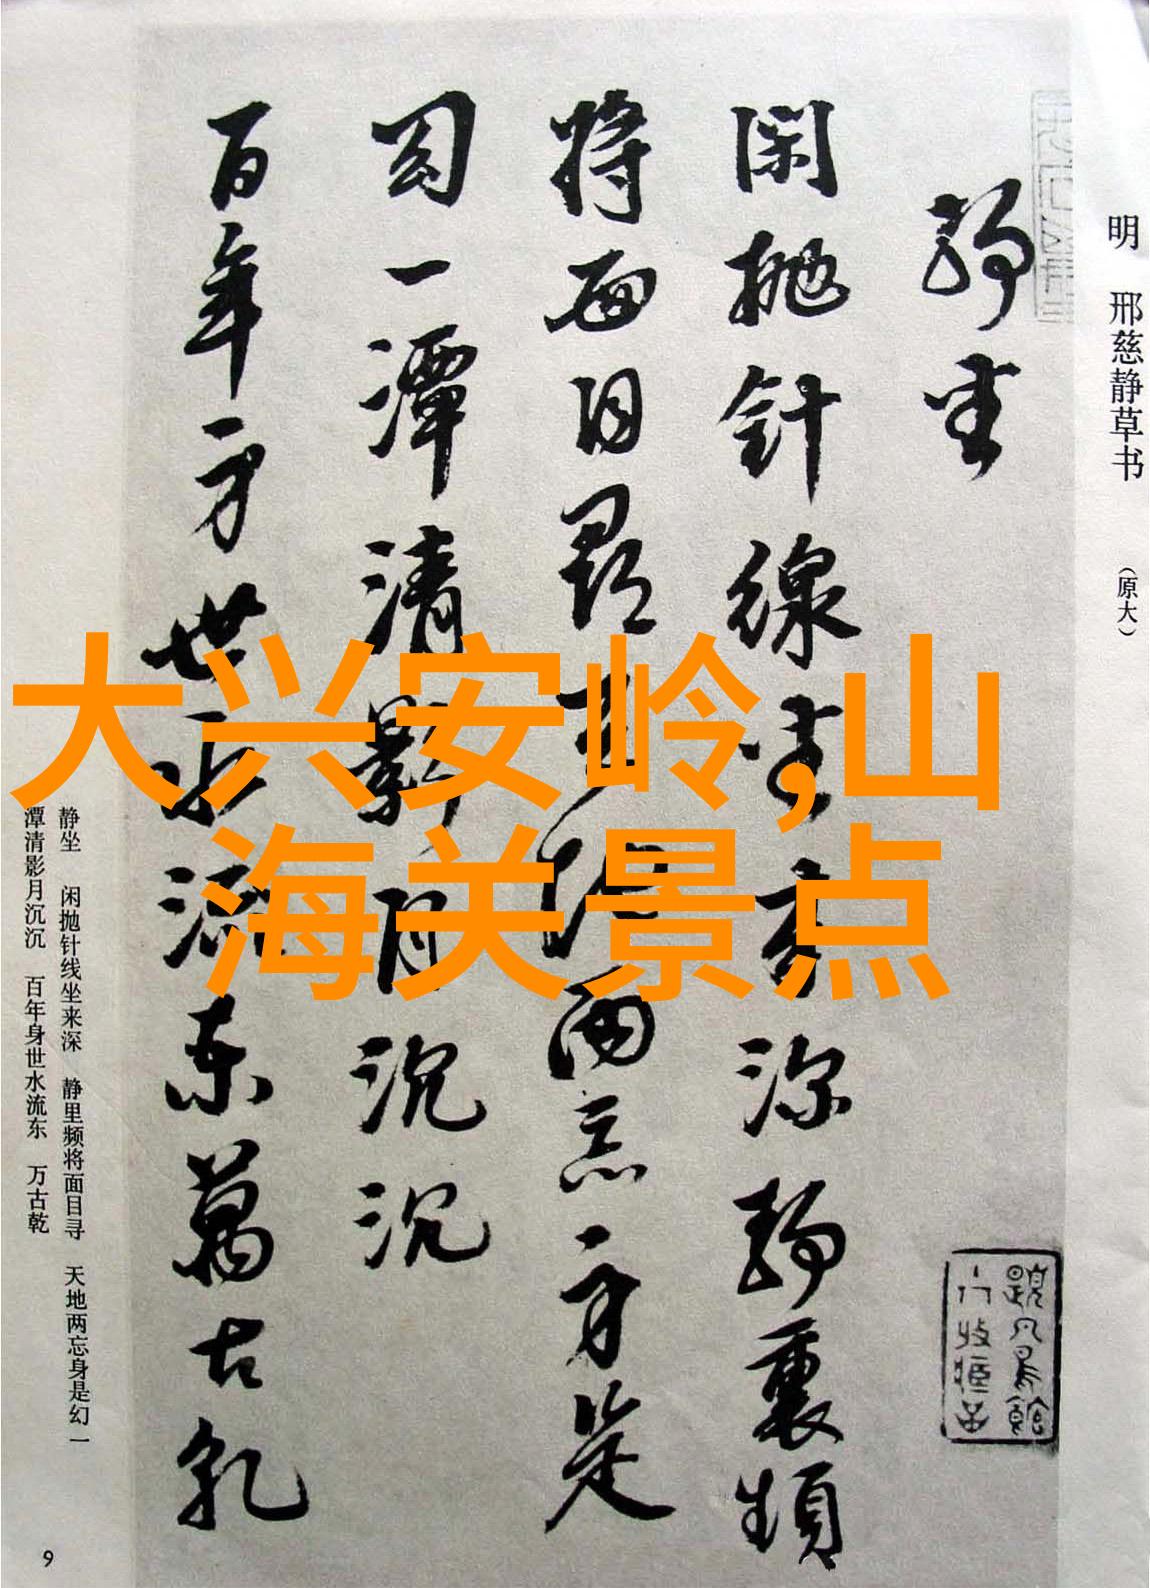 明 邢慈静草书 （原大）
静坐
闲抛针線坐来深静裏頻
将面目尋天地两忘身是
幻一潭清影月沉沉
百年身世水流东萬古乾
静坐 闲抛针线坐来深 静里频将面目寻 天地两忘身是幻 一
潭清影月沉沉 百年身世水流东 万古乾
9
大兴安岭,山
海关景点